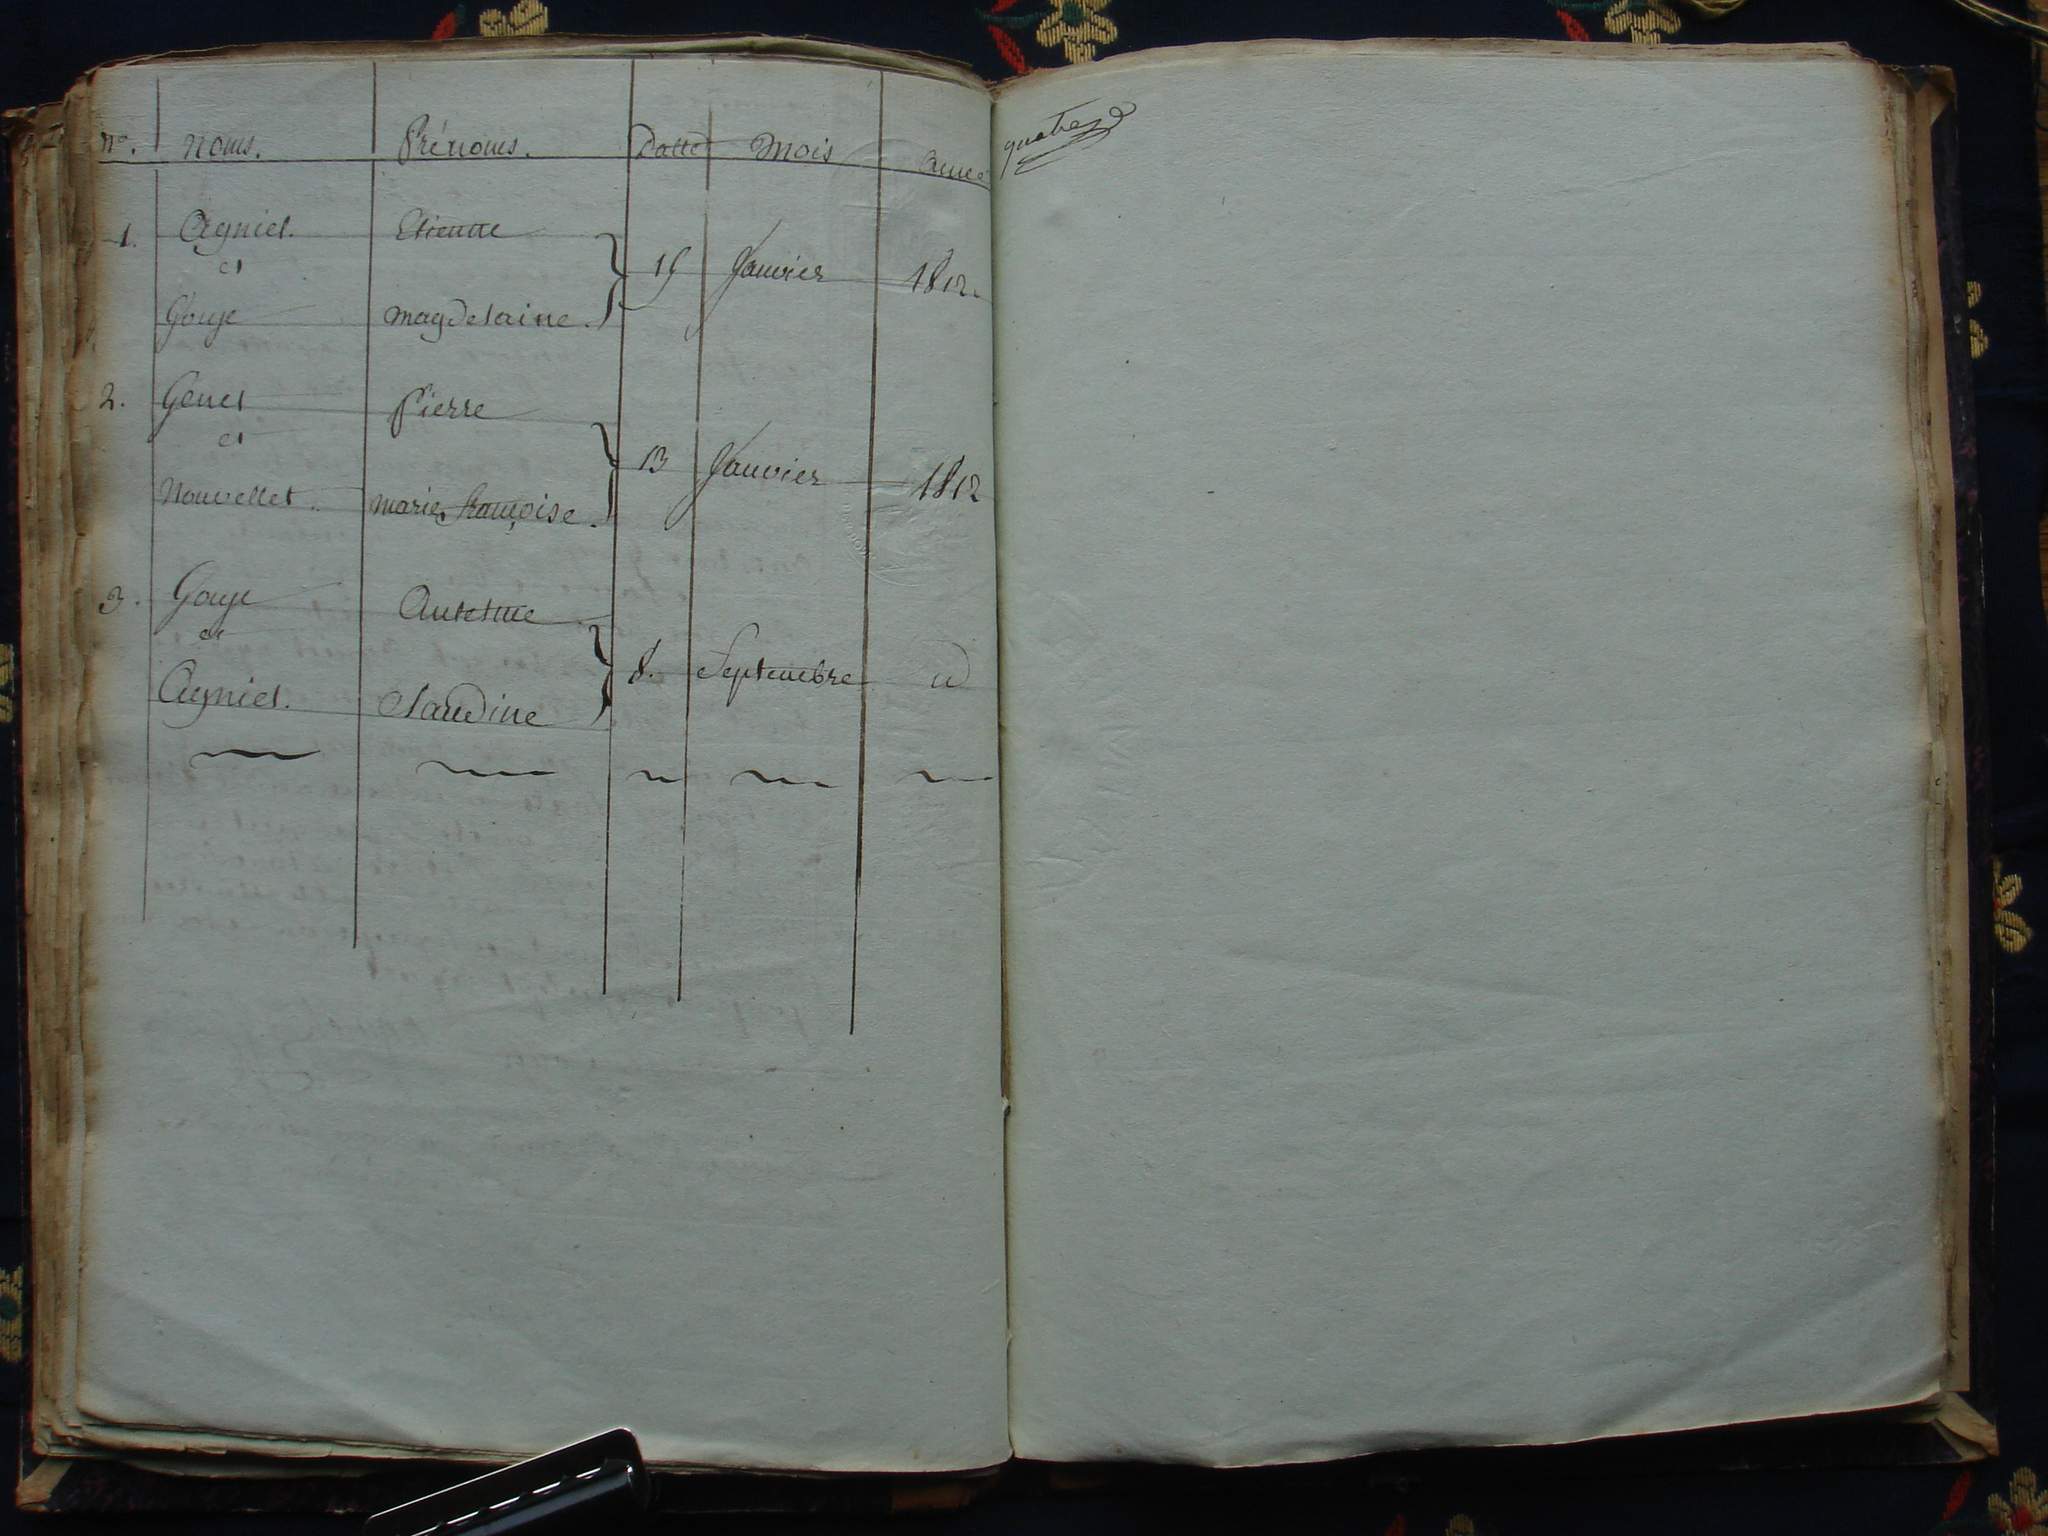 no. Noms. Prénoms. Datte Mois année
1. Agniel. Etienne
et 15 Janvier 1812.
Gouje Magdelaine.
2. Genet Pierre
et 13 Janvier 1812
Nouvellet. marie françoise.
3. Gouje Antoine
et 8. Septembre id
Agniel. Claudine
quatorze